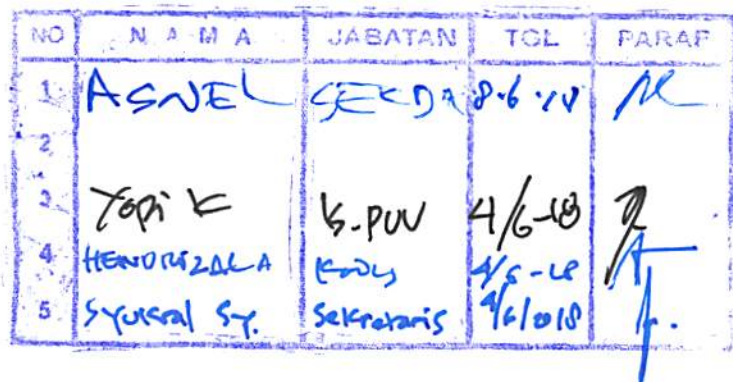 NO NAMA JABATAN TGL PARAF
1 ASNEL SEKDA 8.6.18
2
3 Yopi K K.PUU 4/6-18
4 HENDRIZAL A 4/6-18
5 Syukral Sy. Sekretaris 4/6/2018